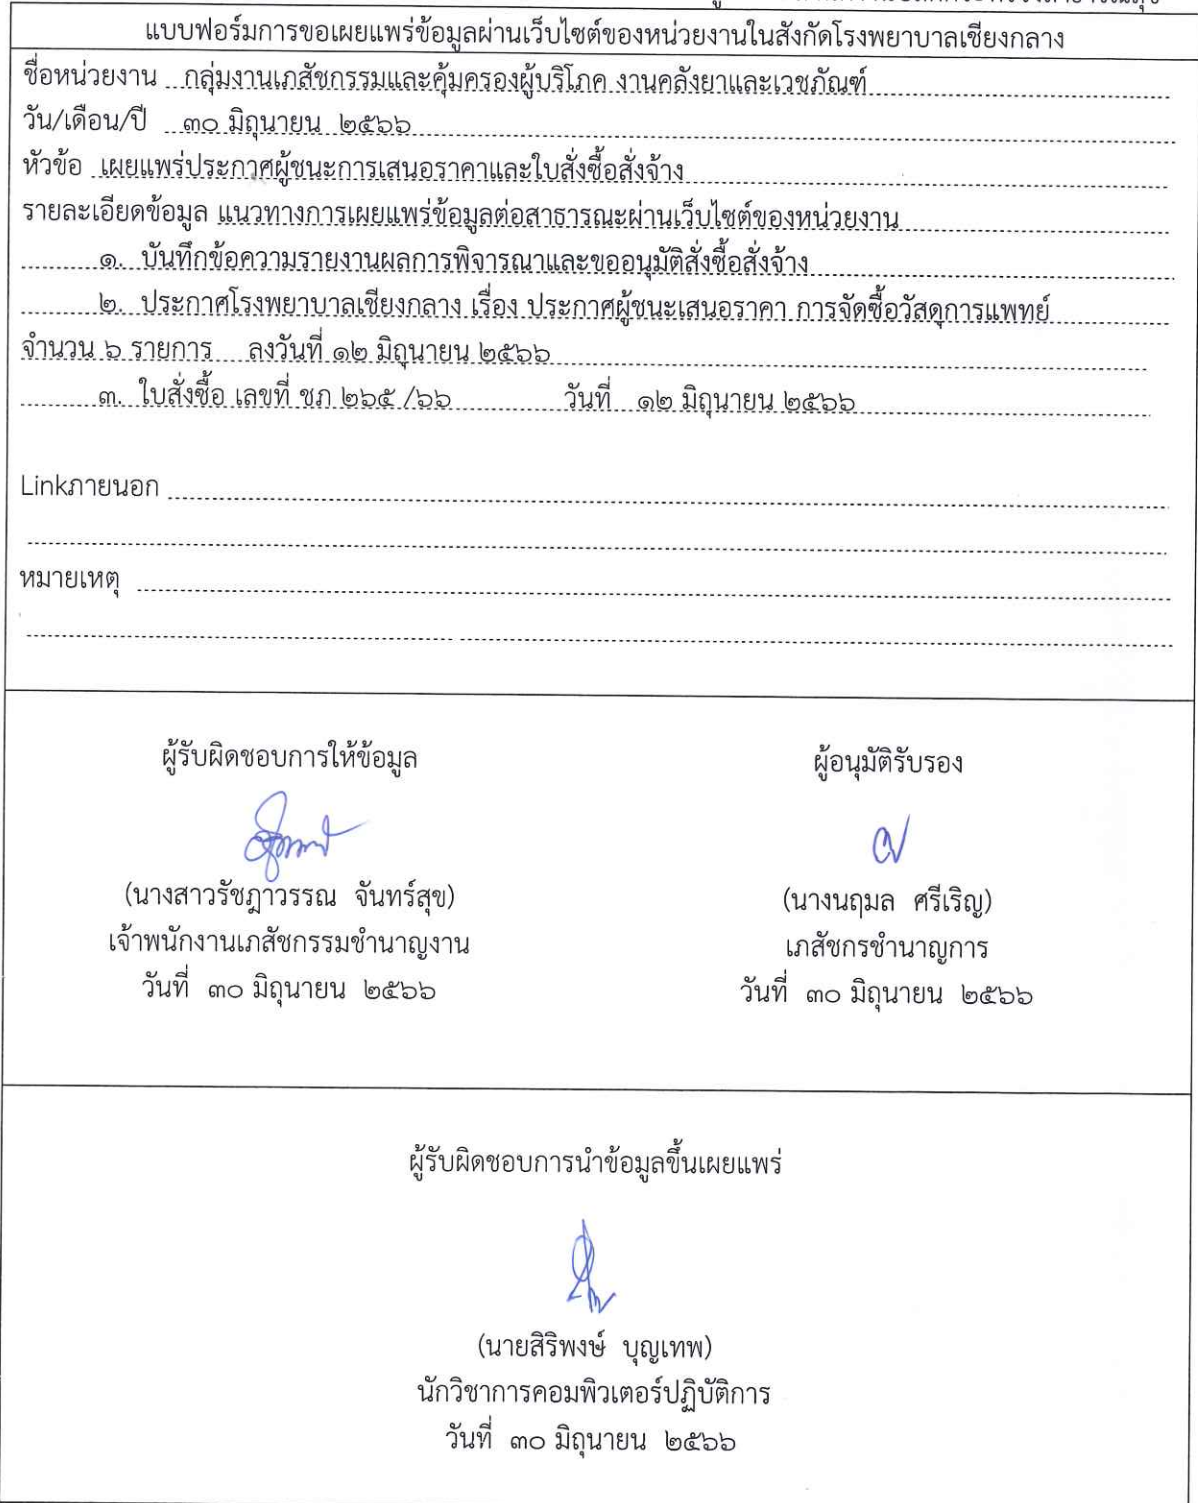 แบบฟอร์มการขอเผยแพร่ข้อมูลผ่านเว็บไซต์ของหน่วยงานในสังกัดโรงพยาบาลเชียงกลาง
ชื่อหน่วยงาน กลุ่มงานเภสัชกรรมและคุ้มครองผู้บริโภค งานคลังยาและเวชภัณฑ์
วัน/เดือน/ปี ๓๐ มิถุนายน ๒๕๖๖
หัวข้อ เผยแพร่ประกาศผู้ชนะการเสนอราคาและใบสั่งซื้อสั่งจ้าง
รายละเอียดข้อมูล แนวทางการเผยแพร่ข้อมูลต่อสาธารณะผ่านเว็บไซต์ของหน่วยงาน
๑. บันทึกข้อความรายงานผลการพิจารณาและขออนุมัติสั่งซื้อสั่งจ้าง
๒. ประกาศโรงพยาบาลเชียงกลาง เรื่อง ประกาศผู้ชนะเสนอราคา การจัดซื้อวัสดุการแพทย์
จำนวน ๖ รายการ ลงวันที่ ๑๒ มิถุนายน ๒๕๖๖
๓. ใบสั่งซื้อ เลขที่ ชภ ๒๖๕ /๖๖ วันที่ ๑๒ มิถุนายน ๒๕๖๖
Linkภายนอก
หมายเหตุ
ผู้รับผิดชอบการให้ข้อมูล
(นางสาวรัชฎาวรรณ จันทร์สุข)
เจ้าพนักงานเภสัชกรรมชำนาญงาน
วันที่ ๓๐ มิถุนายน ๒๕๖๖
ผู้อนุมัติรับรอง
(นางนฤมล ศรีเริญ)
เภสัชกรชำนาญการ
วันที่ ๓๐ มิถุนายน ๒๕๖๖
ผู้รับผิดชอบการนำข้อมูลขึ้นเผยแพร่
(นายสิริพงษ์ บุญเทพ)
นักวิชาการคอมพิวเตอร์ปฏิบัติการ
วันที่ ๓๐ มิถุนายน ๒๕๖๖